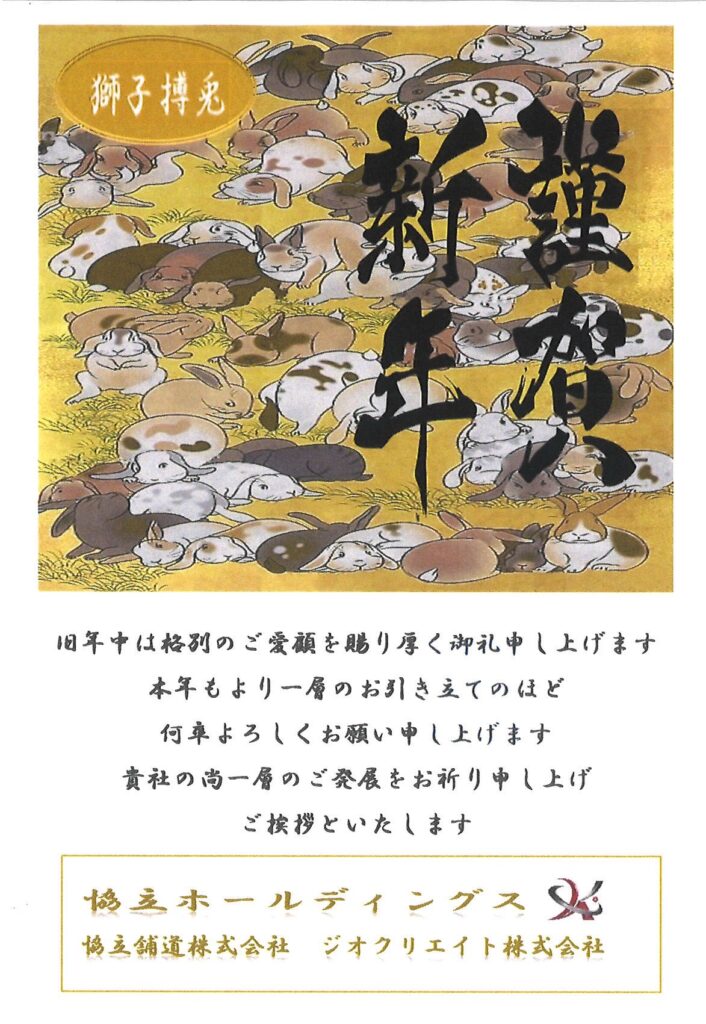 獅子搏兎
謹賀
新年
旧年中は格別のご愛顧を賜り厚く御礼申し上げます
本年もより一層のお引き立てのほど
何卒よろしくお願い申し上げます
貴社の尚一層のご発展をお祈り申し上げ
ご挨拶といたします
協立ホールディングス
協立舗道株式会社 ジオクリエイト株式会社